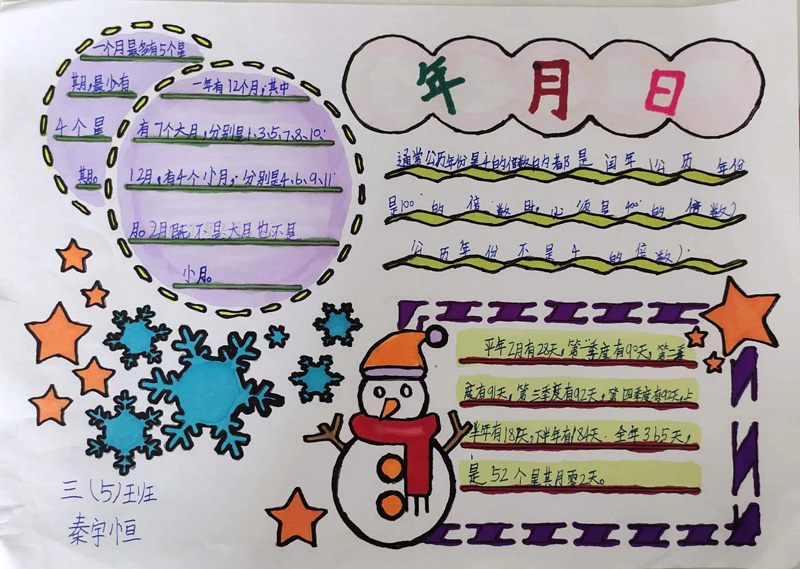 一个月最多有5个星
期,最少有
4个星
期。
一年有12个月,其中
有7个大月,分别是1、3、5、7、8、10、
12月,有4个小月,分别是4、6、9、11
月。2月既不是大月也不是
小月。
年 月 日
通常公历年份是4的倍数的都是闰年(公历年份
是100的倍数时,必须是400的倍数)
公历年份不是4的倍数)
平年2月有28天,第一季度有90天,第二季
度有91天,第三季度有92天,第四季度有92天,上
半年有181天,下半年有184天.全年365天,
是52个星期零2天。
三(5)班
秦宇恒